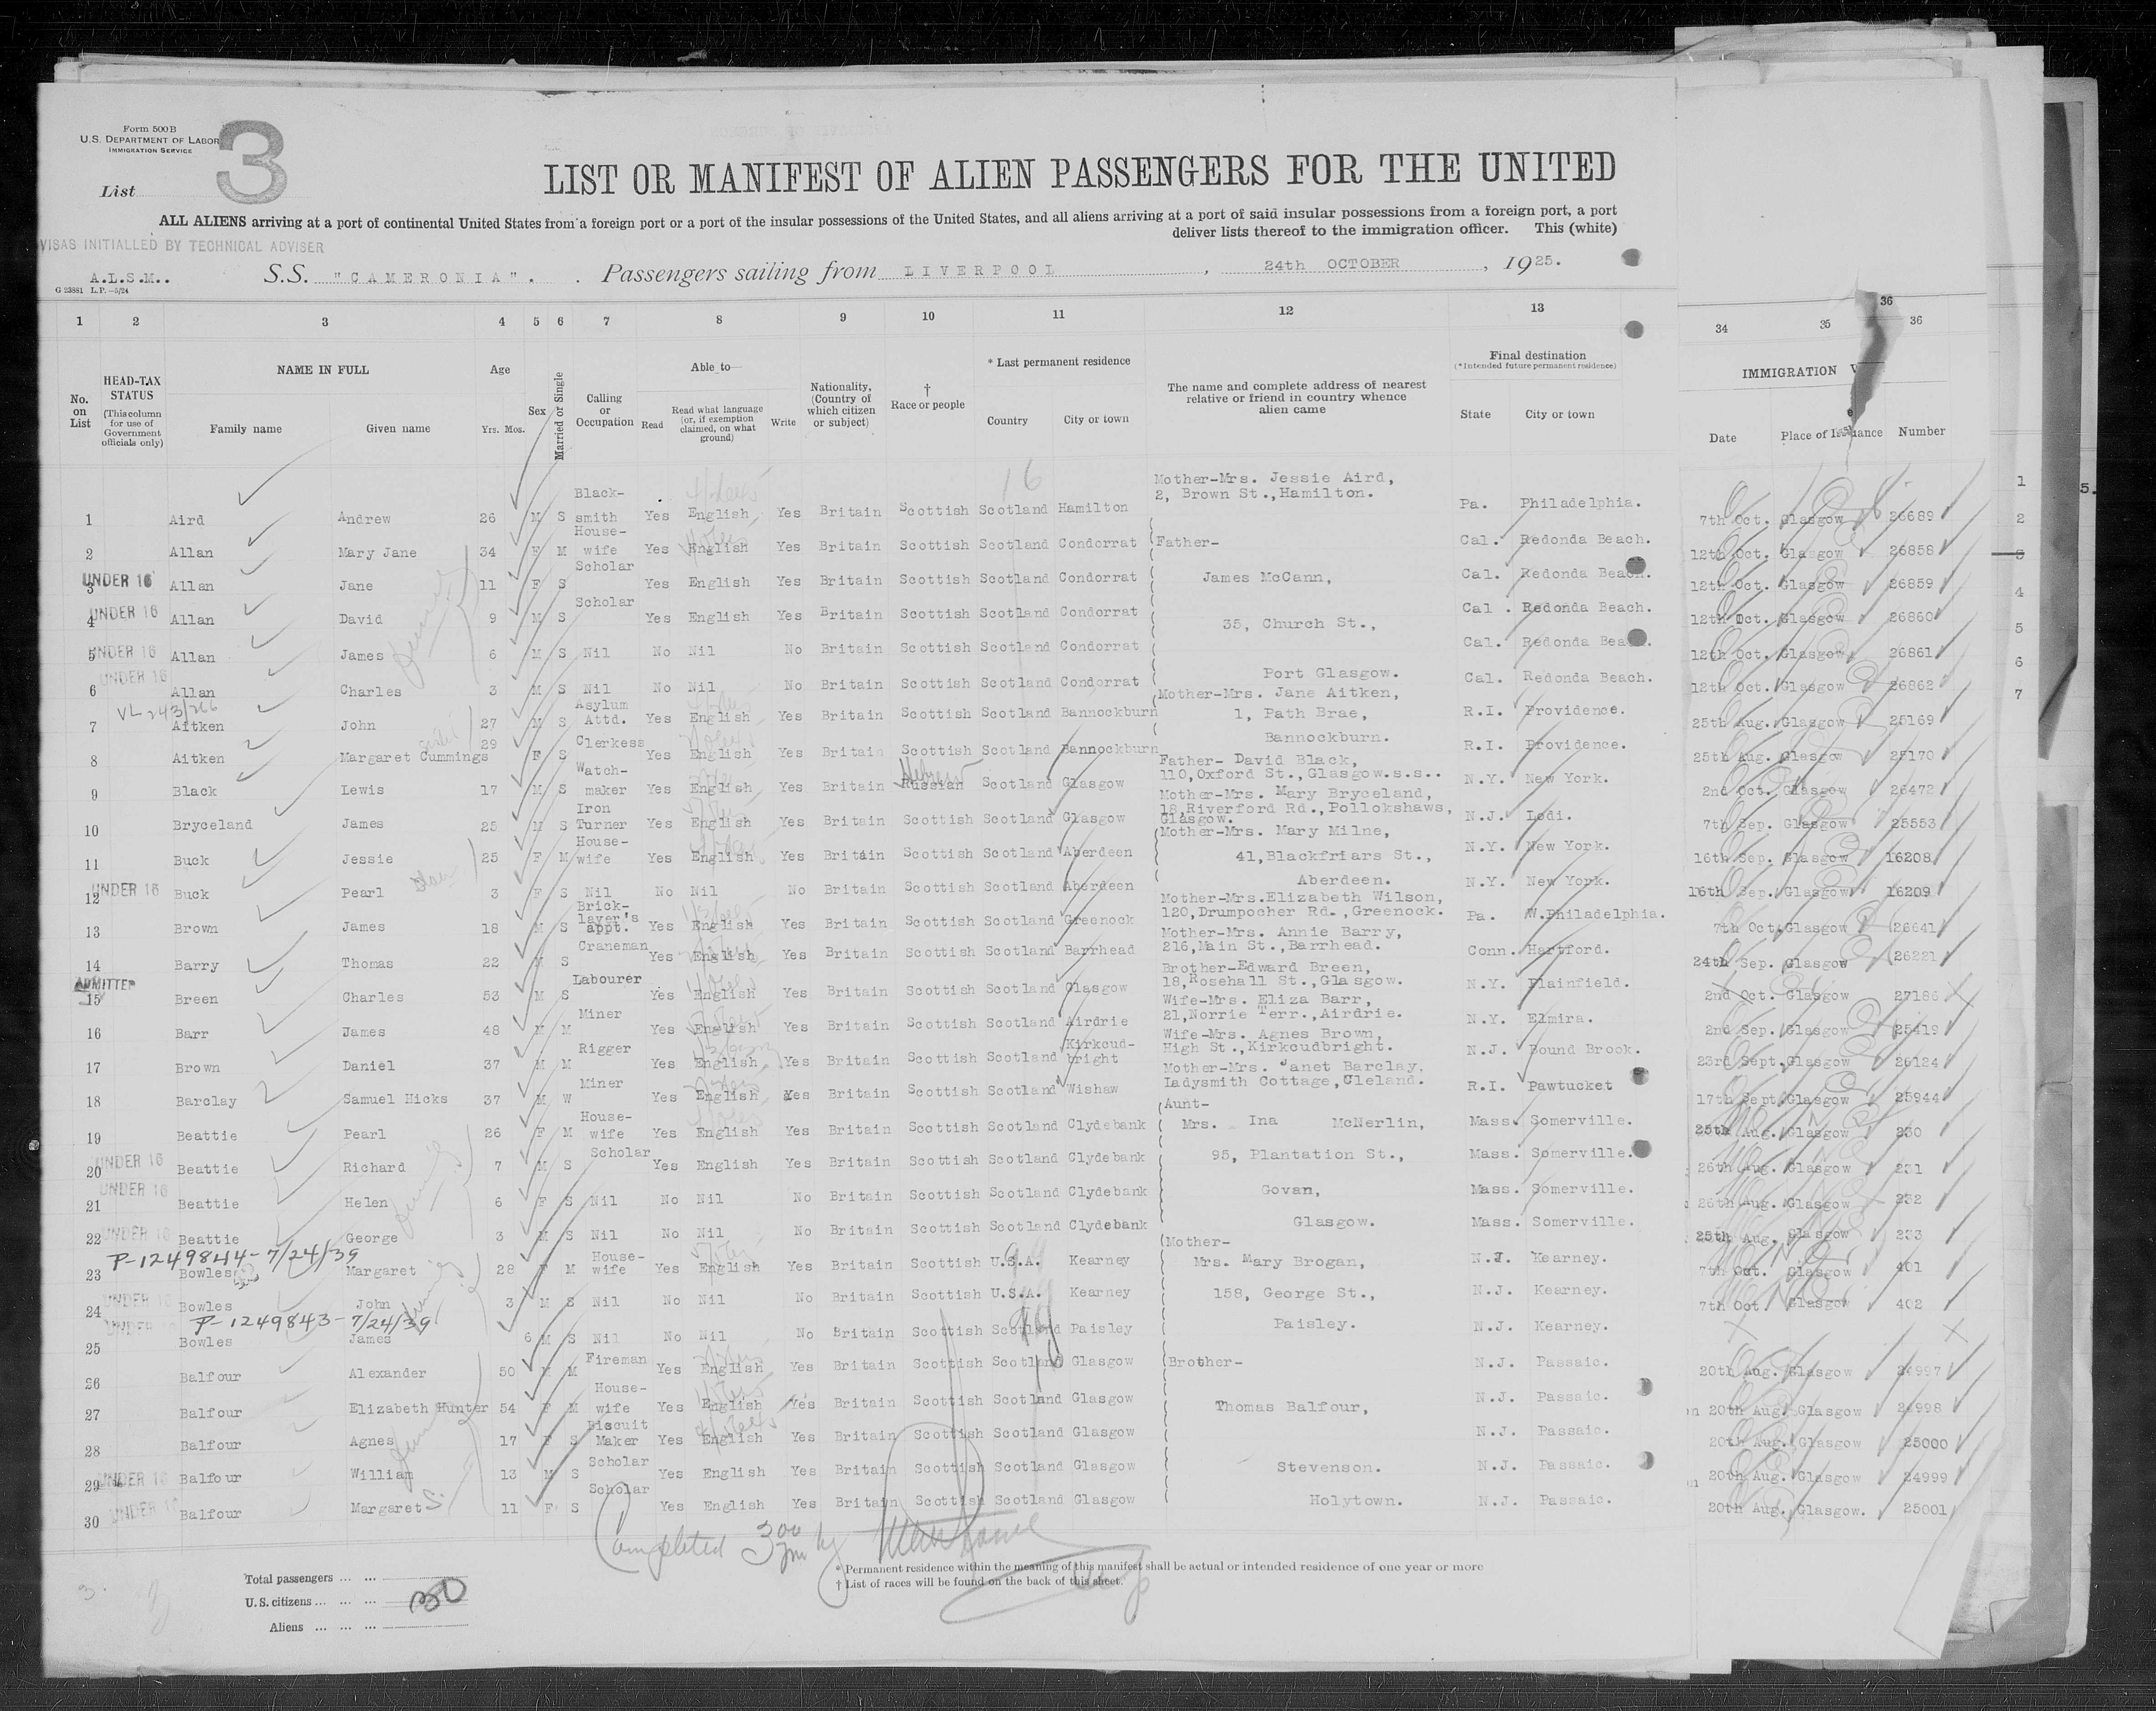 Form 500 B
U.S. DEPARTMENT OF LABOR
IMMIGRATION SERVICE
List 3
LIST OR MANIFEST OF ALIEN PASSENGERS FOR THE UNITED
ALL ALIENS arriving at a port of continental United States from a foreign port or a port of the insular possessions of the United States, and all aliens arriving at a port of said insular possessions from a foreign port, a port
deliver lists thereof to the immigration officer. This (white)
VISAS INITIALLED BY TECHNICAL ADVISER
A.L.S.M..
S.S. "CAMERONIA". Passengers sailing from LIVERPOOL, 24th OCTOBER, 1925.
G 23881 L.P.—5/24
1 2 3 4 5 6 7 8 9 10 11 12 13 34 35 36 36
No. on List
HEAD-TAX STATUS (This column for use of Government officials only)
NAME IN FULL Family name Given name
Age Yrs. Mos.
Sex
Married or Single
Calling or Occupation
Able to— Read Read what language (or, if exemption claimed, on what ground) Write
Nationality, (Country of which citizen or subject)
† Race or people
* Last permanent residence Country City or town
The name and complete address of nearest relative or friend in country whence alien came
Final destination (*Intended future permanent residence) State City or town
IMMIGRATION V
Date Place of Issuance Number
1 Aird Andrew 26 M S Black-smith Yes English Yes Britain Scottish Scotland Hamilton Mother-Mrs. Jessie Aird, 2, Brown St.,Hamilton. Pa. Philadelphia. 7th Oct. Glasgow 26689
2 Allan Mary Jane 34 F M House-wife Yes English Yes Britain Scottish Scotland Condorrat Father- Cal. Redonda Beach. 12th Oct. Glasgow 26858
UNDER 16 3 Allan Jane 11 F S Scholar Yes English Yes Britain Scottish Scotland Condorrat James McCann, Cal. Redonda Beach. 12th Oct. Glasgow 26859
UNDER 16 4 Allan David 9 M S Scholar Yes English Yes Britain Scottish Scotland Condorrat 35, Church St., Cal. Redonda Beach. 12th Oct. Glasgow 26860
UNDER 16 5 Allan James 6 M S Nil No Nil No Britain Scottish Scotland Condorrat Cal. Redonda Beach. 12th Oct. Glasgow 26861
UNDER 16 6 Allan Charles 3 M S Nil No Nil No Britain Scottish Scotland Condorrat Port Glasgow. Cal. Redonda Beach. 12th Oct. Glasgow 26862
VL 243/266
7 Aitken John 27 M S Asylum Attd. Yes English Yes Britain Scottish Scotland Bannockburn Mother-Mrs. Jane Aitken, 1, Path Brae, R.I. Providence. 25th Aug. Glasgow 25169
8 Aitken Margaret Cummings 29 F S Clerkess Yes English Yes Britain Scottish Scotland Bannockburn Bannockburn. R.I. Providence. 25th Aug. Glasgow 25170
9 Black Lewis 17 M S Watch-maker Yes English Yes Britain Russian Hebrew Scotland Glasgow Father- David Black, 110,Oxford St.,Glasgow.s.s.. N.Y. New York. 2nd Oct. Glasgow 26472
10 Bryceland James 25 M S Iron Turner Yes English Yes Britain Scottish Scotland Glasgow Mother-Mrs. Mary Bryceland, 18,Riverford Rd.,Pollokshaws, Glasgow. N.J. Lodi. 7th Sep. Glasgow 25553
11 Buck Jessie 25 F M House-wife Yes English Yes Britain Scottish Scotland Aberdeen Mother-Mrs. Mary Milne, 41,Blackfriars St., N.Y. New York. 16th Sep. Glasgow 16208
UNDER 16 12 Buck Pearl 3 F S Nil No Nil No Britain Scottish Scotland Aberdeen Aberdeen. N.Y. New York. 16th Sep. Glasgow 16209
13 Brown James 18 M S Brick-layer's appt. Yes English Yes Britain Scottish Scotland Greenock Mother-Mrs.Elizabeth Wilson, 120,Drumpocher Rd.,Greenock. Pa. W.Philadelphia. 7th Oct. Glasgow 26641
14 Barry Thomas 22 M S Craneman Yes English Yes Britain Scottish Scotland Barrhead Mother-Mrs. Annie Barry, 216,Main St.,Barrhead. Conn. Hartford. 24th Sep. Glasgow 26221
ADMITTED 15 Breen Charles 53 M S Labourer Yes English Yes Britain Scottish Scotland Glasgow Brother-Edward Breen, 18,Rosehall St.,Glasgow. N.Y. Plainfield. 2nd Oct. Glasgow 27186
16 Barr James 48 M M Miner Yes English Yes Britain Scottish Scotland Airdrie Wife-Mrs. Eliza Barr, 21,Norrie Terr.,Airdrie. N.Y. Elmira. 2nd Sep. Glasgow 25419
17 Brown Daniel 37 M M Rigger Yes English Yes Britain Scottish Scotland Kirkcud-bright Wife-Mrs. Agnes Brown, High St.,Kirkcudbright. N.J. Bound Brook. 23rd Sept. Glasgow 26124
18 Barclay Samuel Hicks 37 M W Miner Yes English Yes Britain Scottish Scotland Wishaw Mother-Mrs. Janet Barclay, Ladysmith Cottage,Cleland. R.I. Pawtucket 17th Sept. Glasgow 25944
19 Beattie Pearl 26 F M House-wife Yes English Yes Britain Scottish Scotland Clydebank Aunt- Mrs. Ina McNerlin, Mass. Somerville. 25th Aug. Glasgow 230
UNDER 16 20 Beattie Richard 7 M S Scholar Yes English Yes Britain Scottish Scotland Clydebank 95, Plantation St., Mass. Somerville. 26th Aug. Glasgow 231
UNDER 16 21 Beattie Helen 6 F S Nil No Nil No Britain Scottish Scotland Clydebank Govan, Mass. Somerville. 26th Aug. Glasgow 232
UNDER 16 22 Beattie George 3 M S Nil No Nil No Britain Scottish Scotland Clydebank Glasgow. Mass. Somerville. 25th Aug. Glasgow 233
P-1249844-7/24/39
23 Bowles Margaret 28 F M House-wife Yes English Yes Britain Scottish U.S.A. Kearney Mother- Mrs. Mary Brogan, N.J. Kearney. 7th Oct. Glasgow 401
UNDER 16 24 Bowles John 3 M S Nil No Nil No Britain Scottish U.S.A. Kearney 158, George St., N.J. Kearney. 7th Oct. Glasgow 402
P-1249843-7/24/39
UNDER 16 25 Bowles James 6 M S Nil No Nil No Britain Scottish Scotland Paisley Paisley. N.J. Kearney.
26 Balfour Alexander 50 M M Fireman Yes English Yes Britain Scottish Scotland Glasgow Brother- N.J. Passaic. 20th Aug. Glasgow 24997
27 Balfour Elizabeth Hunter 54 F M House-wife Yes English Yes Britain Scottish Scotland Glasgow Thomas Balfour, N.J. Passaic. 20th Aug. Glasgow 24998
28 Balfour Agnes 17 F S Biscuit Maker Yes English Yes Britain Scottish Scotland Glasgow N.J. Passaic. 20th Aug. Glasgow 25000
UNDER 16 29 Balfour William 13 M S Scholar Yes English Yes Britain Scottish Scotland Glasgow Stevenson. N.J. Passaic. 20th Aug. Glasgow 24999
UNDER 16 30 Balfour Margaret S. 11 F S Scholar Yes English Yes Britain Scottish Scotland Glasgow Holytown. N.J. Passaic. 20th Aug. Glasgow. 25001
Completed 3 00 pm by
* Permanent residence within the meaning of this manifest shall be actual or intended residence of one year or more
† List of races will be found on the back of this sheet.
Total passengers ... ...
U.S. citizens ... ... ... 30
Aliens ... ... ...